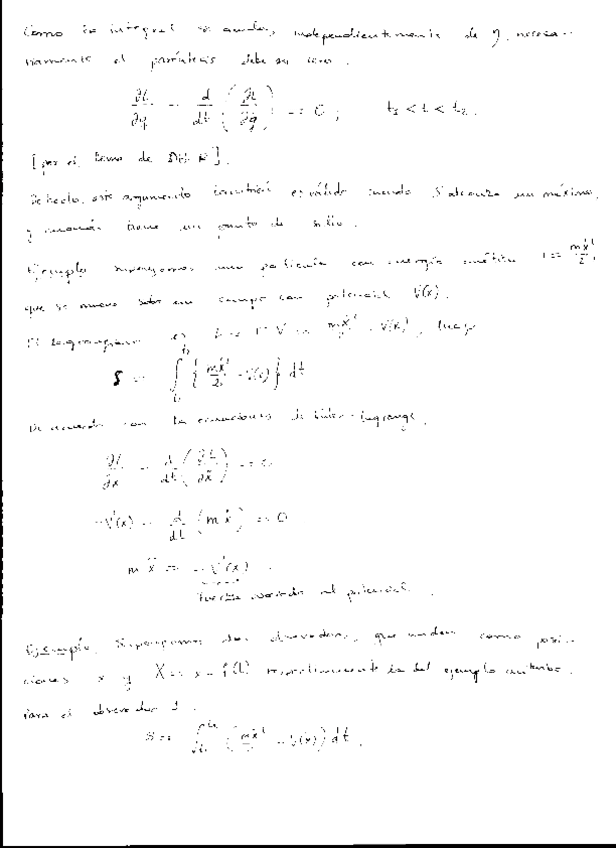 Como la integral se anula, independientemente de η, necesa-
riamente el paréntesis debe ser cero.
∂L/∂q - d/dt (∂L/∂q̇) = 0 ; t₁ < t < t₂.
[por el lema de ].
De hecho, este argumento también es válido cuando S alcanza un máximo,
y cuando tiene un punto de silla.
Ejemplo supongamos una partícula con energía cinética T = mẋ²/2,
que se mueve sobre un campo con potencial V(x).
El lagrangiano es L = T - V = mẋ²/2 - V(x), luego
S = ∫ { mẋ²/2 - V(x) } dt
De acuerdo con las ecuaciones de Euler-Lagrange,
∂L/∂x - d/dt (∂L/∂ẋ) = 0
-V'(x) - d/dt (mẋ) = 0
mẍ = -V'(x).
fuerza asociada al potencial.
Ejemplo. Supongamos dos observadores, que miden como posi-
ciones x y X = x - f(t) respectivamente la del ejemplo anterior.
Para el observador 1.
S = ∫ (mẋ²/2 - V(x)) dt.